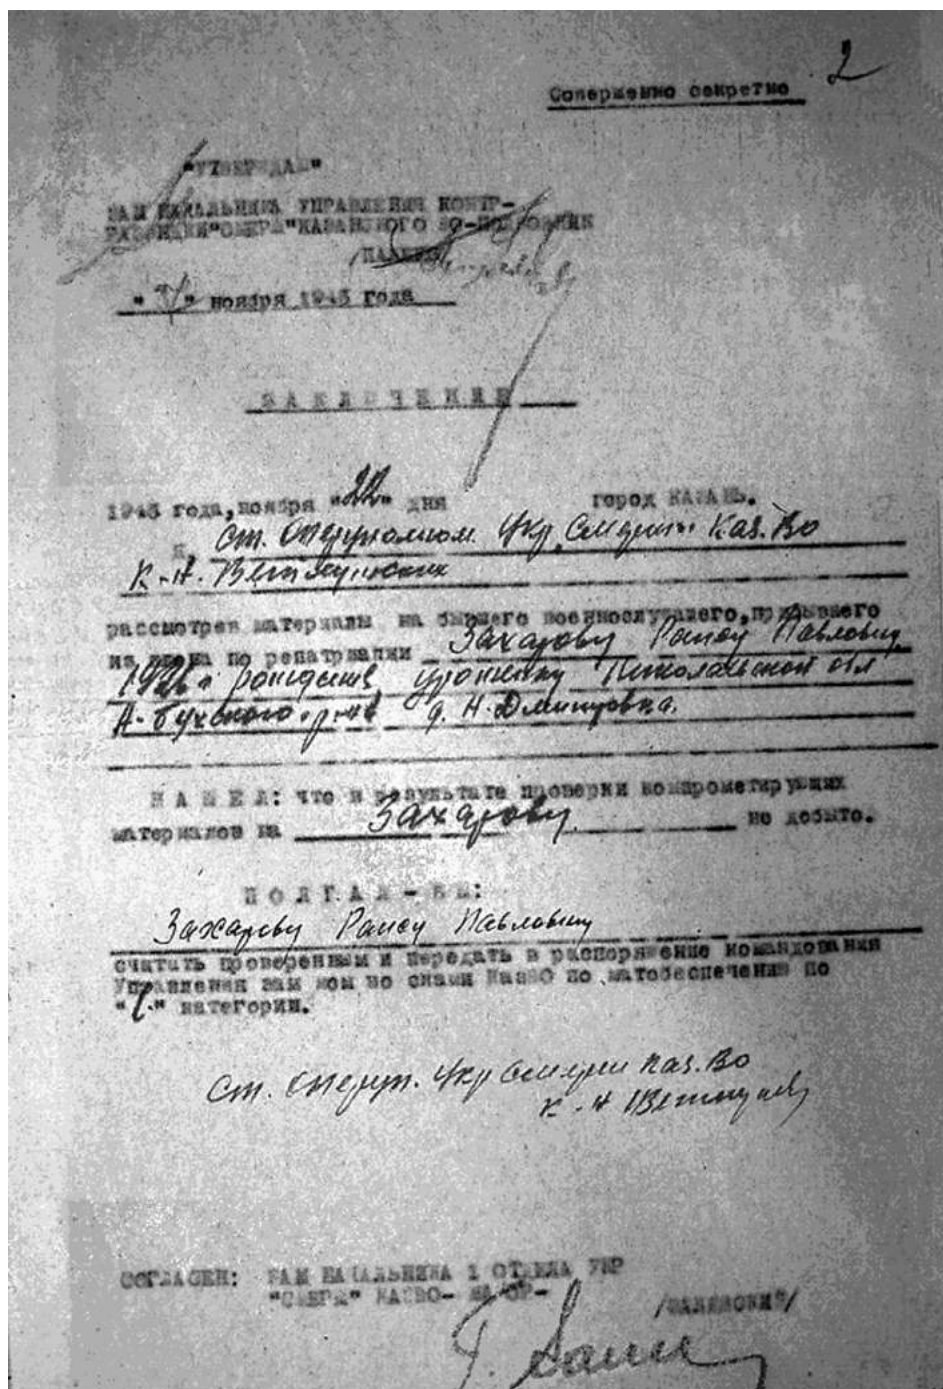 2
Совершенно секретно
"УТВЕРЖДАЮ"
ЗАМ НАЧАЛЬНИКА УПРАВЛЕНИЯ КОНТР-
РАЗВЕДКИ "СМЕРШ" КАЗАНСКОГО ВО-ПОЛКОВНИК
ноября 1945 года
ЗАКЛЮЧЕНИЕ
1945 года, ноября "22" дня город КАЗАНЬ.
Я, ст. оперуполном. Укр. Смерш Каз.Во
к-н.
рассмотрев материалы на бывшего военнослужащего, прибывшего
из плена по репатриации Захарову Раису Павловну
1926 г рождения уроженку Николаевской обл
Н-Бугского р-на д. Н-Дмитровка.
НАШЕЛ: что в результате проверки компрометирующих
материалов на Захарову не добыто.
ПОЛАГАЛ-БЫ:
Захарову Раису Павловну
считать проверенным и передать в распоряжение командования
Управления зам ком во снабж КазВО по матобеспечению по
" " категории.
Ст. оперуп. Укр Смерш Каз.Во
к-н
СОГЛАСЕН: ЗАМ НАЧАЛЬНИКА 1 ОТДЕЛА УКР
"СМЕРШ" КАЗВО- МАЙОР-